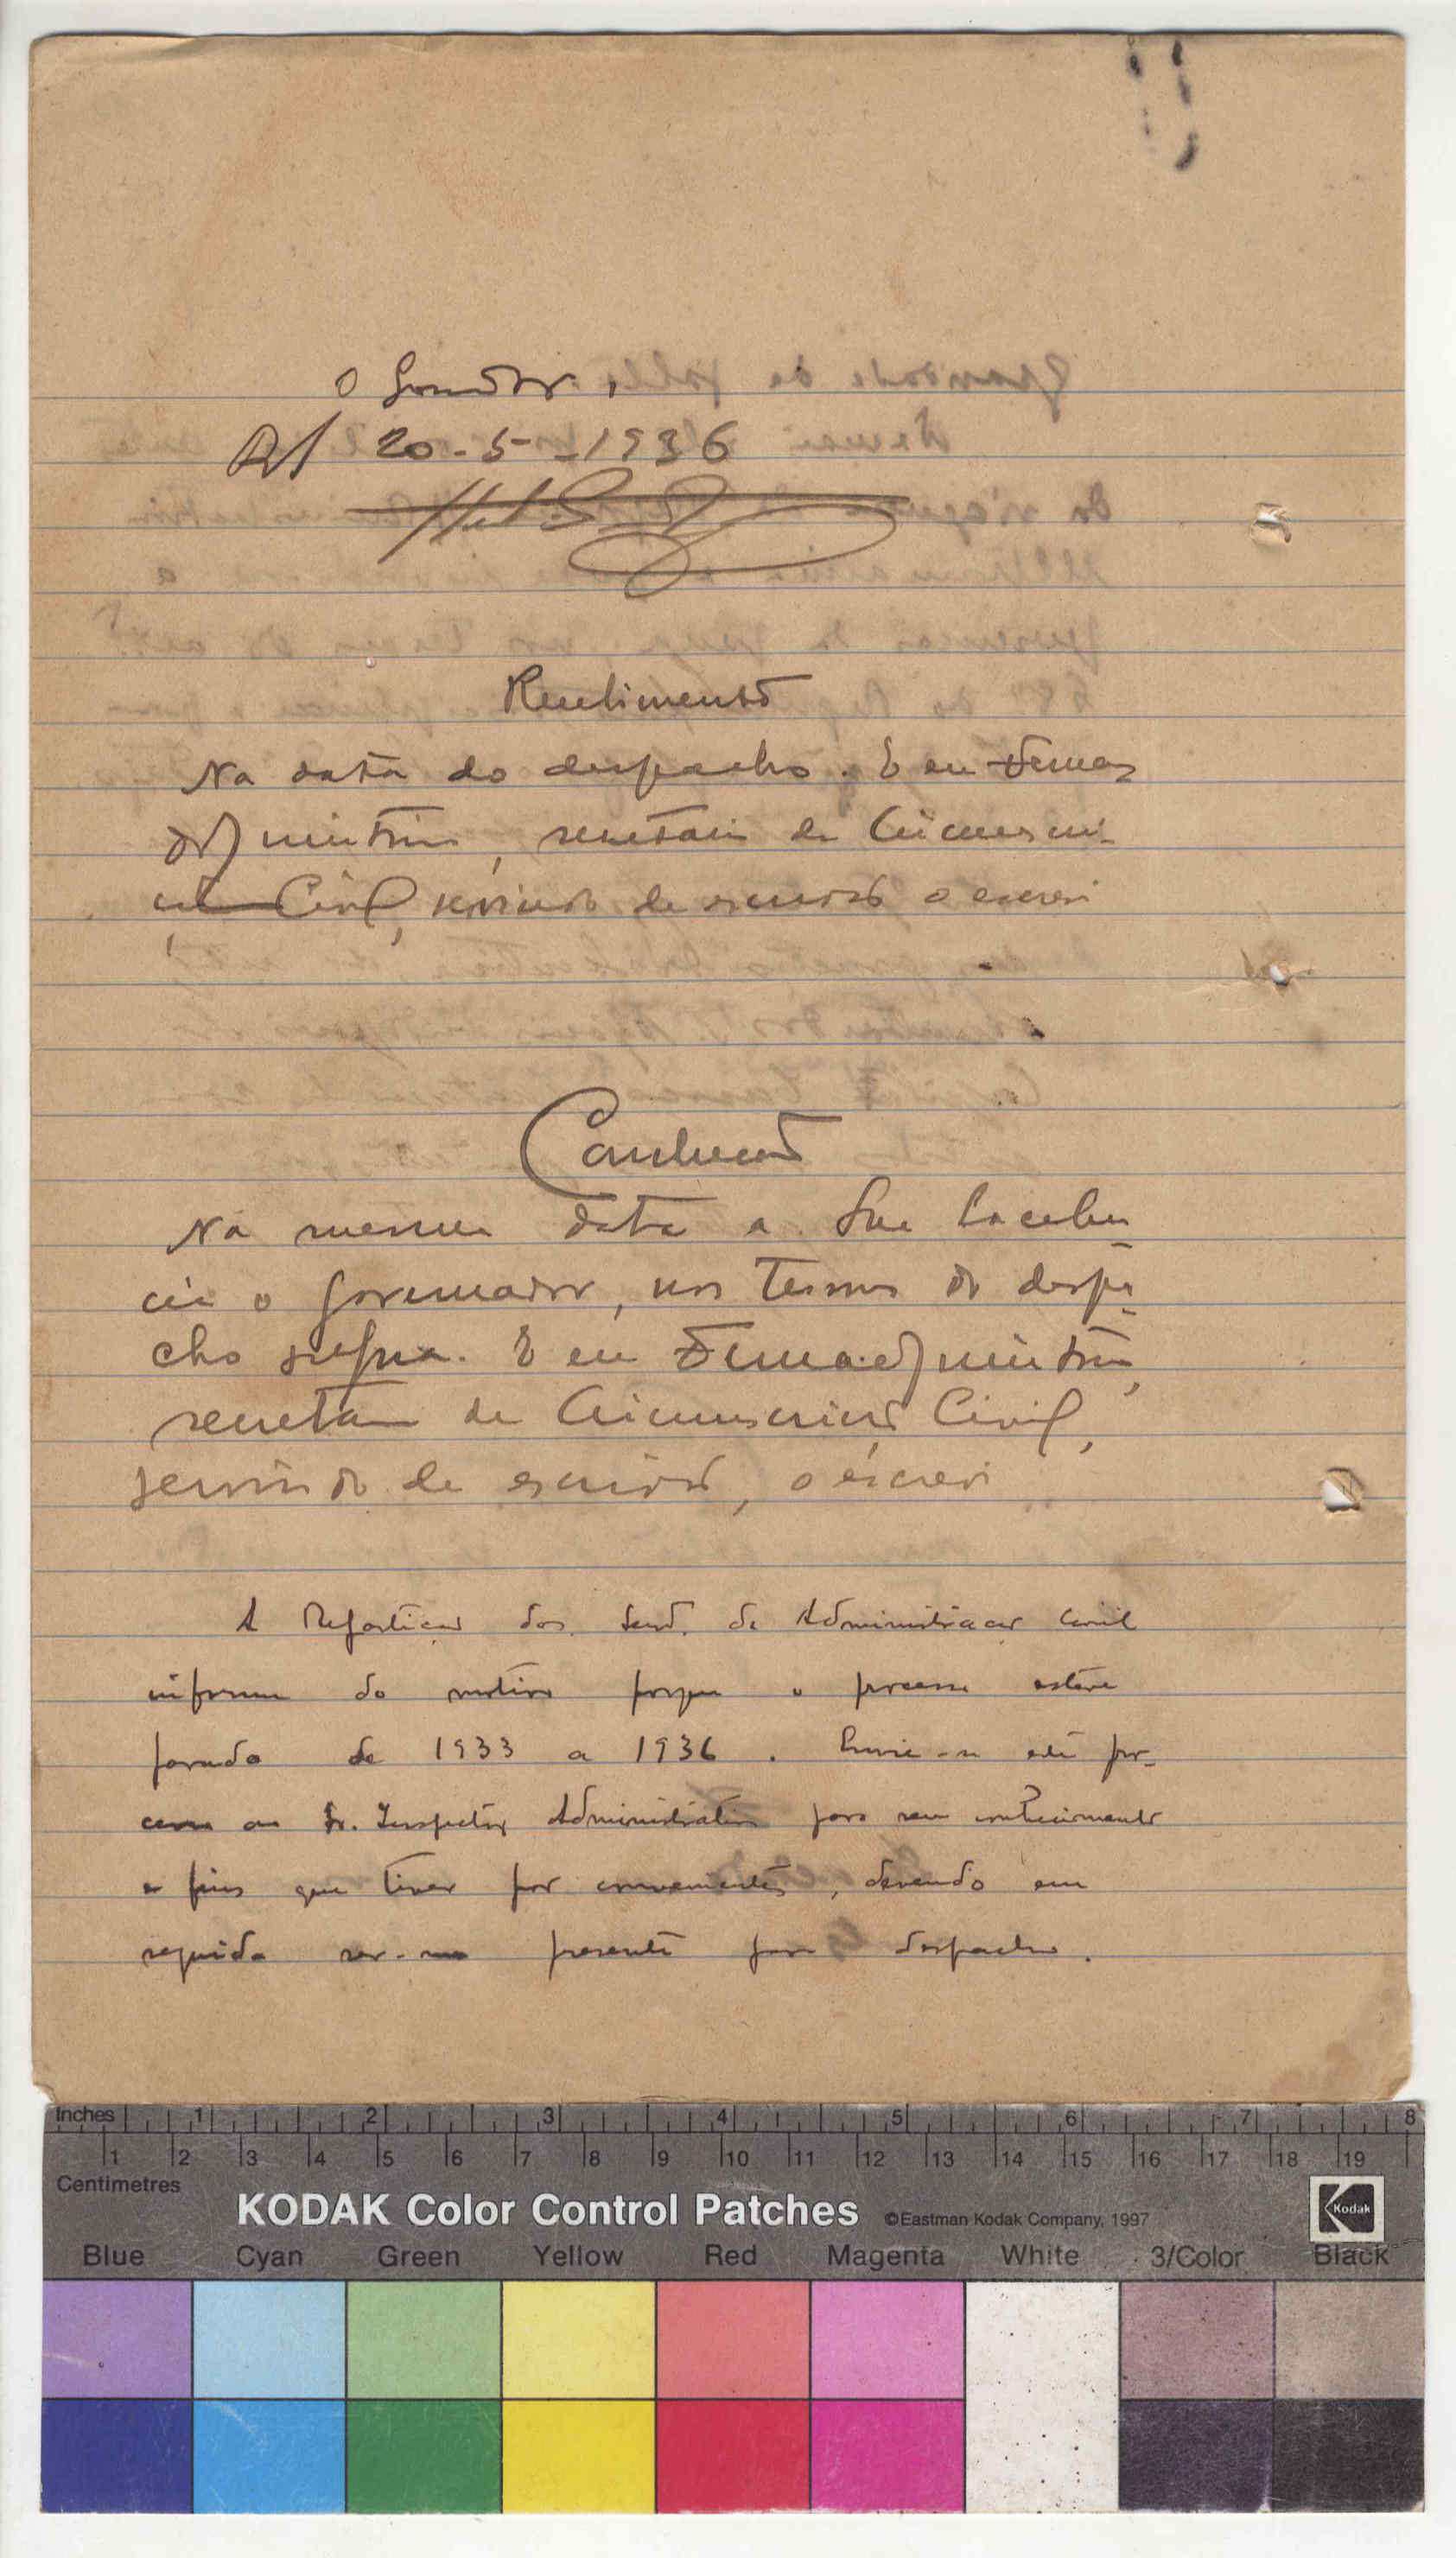 O Governador,
20-5-1936
Recebimento
Na data do despacho. E eu
secretario da Circunscri-
ção Civil, servindo de escrivão o escrevi
Conclusão
Na mesma data a Sua Excelen-
cia o Governador, nos termos do despa-
cho supra. E eu
secretario da Circunscrição Civil,
servindo de escrivão, o escrevi
A Repartição dos Serv. da Administração Civil
informe do motivo porque o processo esteve
parado de 1933 a 1936. Envie-se este pro-
cesso ao Sr. Inspector Administrativo para seu conhecimento
e fins que tiver por convenientes, devendo em
seguida ser-me presente para despacho.
Inches 1 2 3 4 5 6 7 8
1 2 3 4 5 6 7 8 9 10 11 12 13 14 15 16 17 18 19
Centimetres
KODAK Color Control Patches ©Eastman Kodak Company, 1997 Kodak
Blue Cyan Green Yellow Red Magenta White 3/Color Black